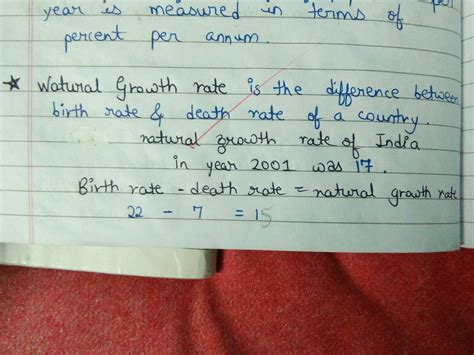 year is measured in terms of
percent per annum.
★ Natural Growth rate is the difference between
birth rate & death rate of a country.
natural growth rate of India
in year 2001 was 17.
Birth rate - death rate = natural growth rate
22 - 7 = 15